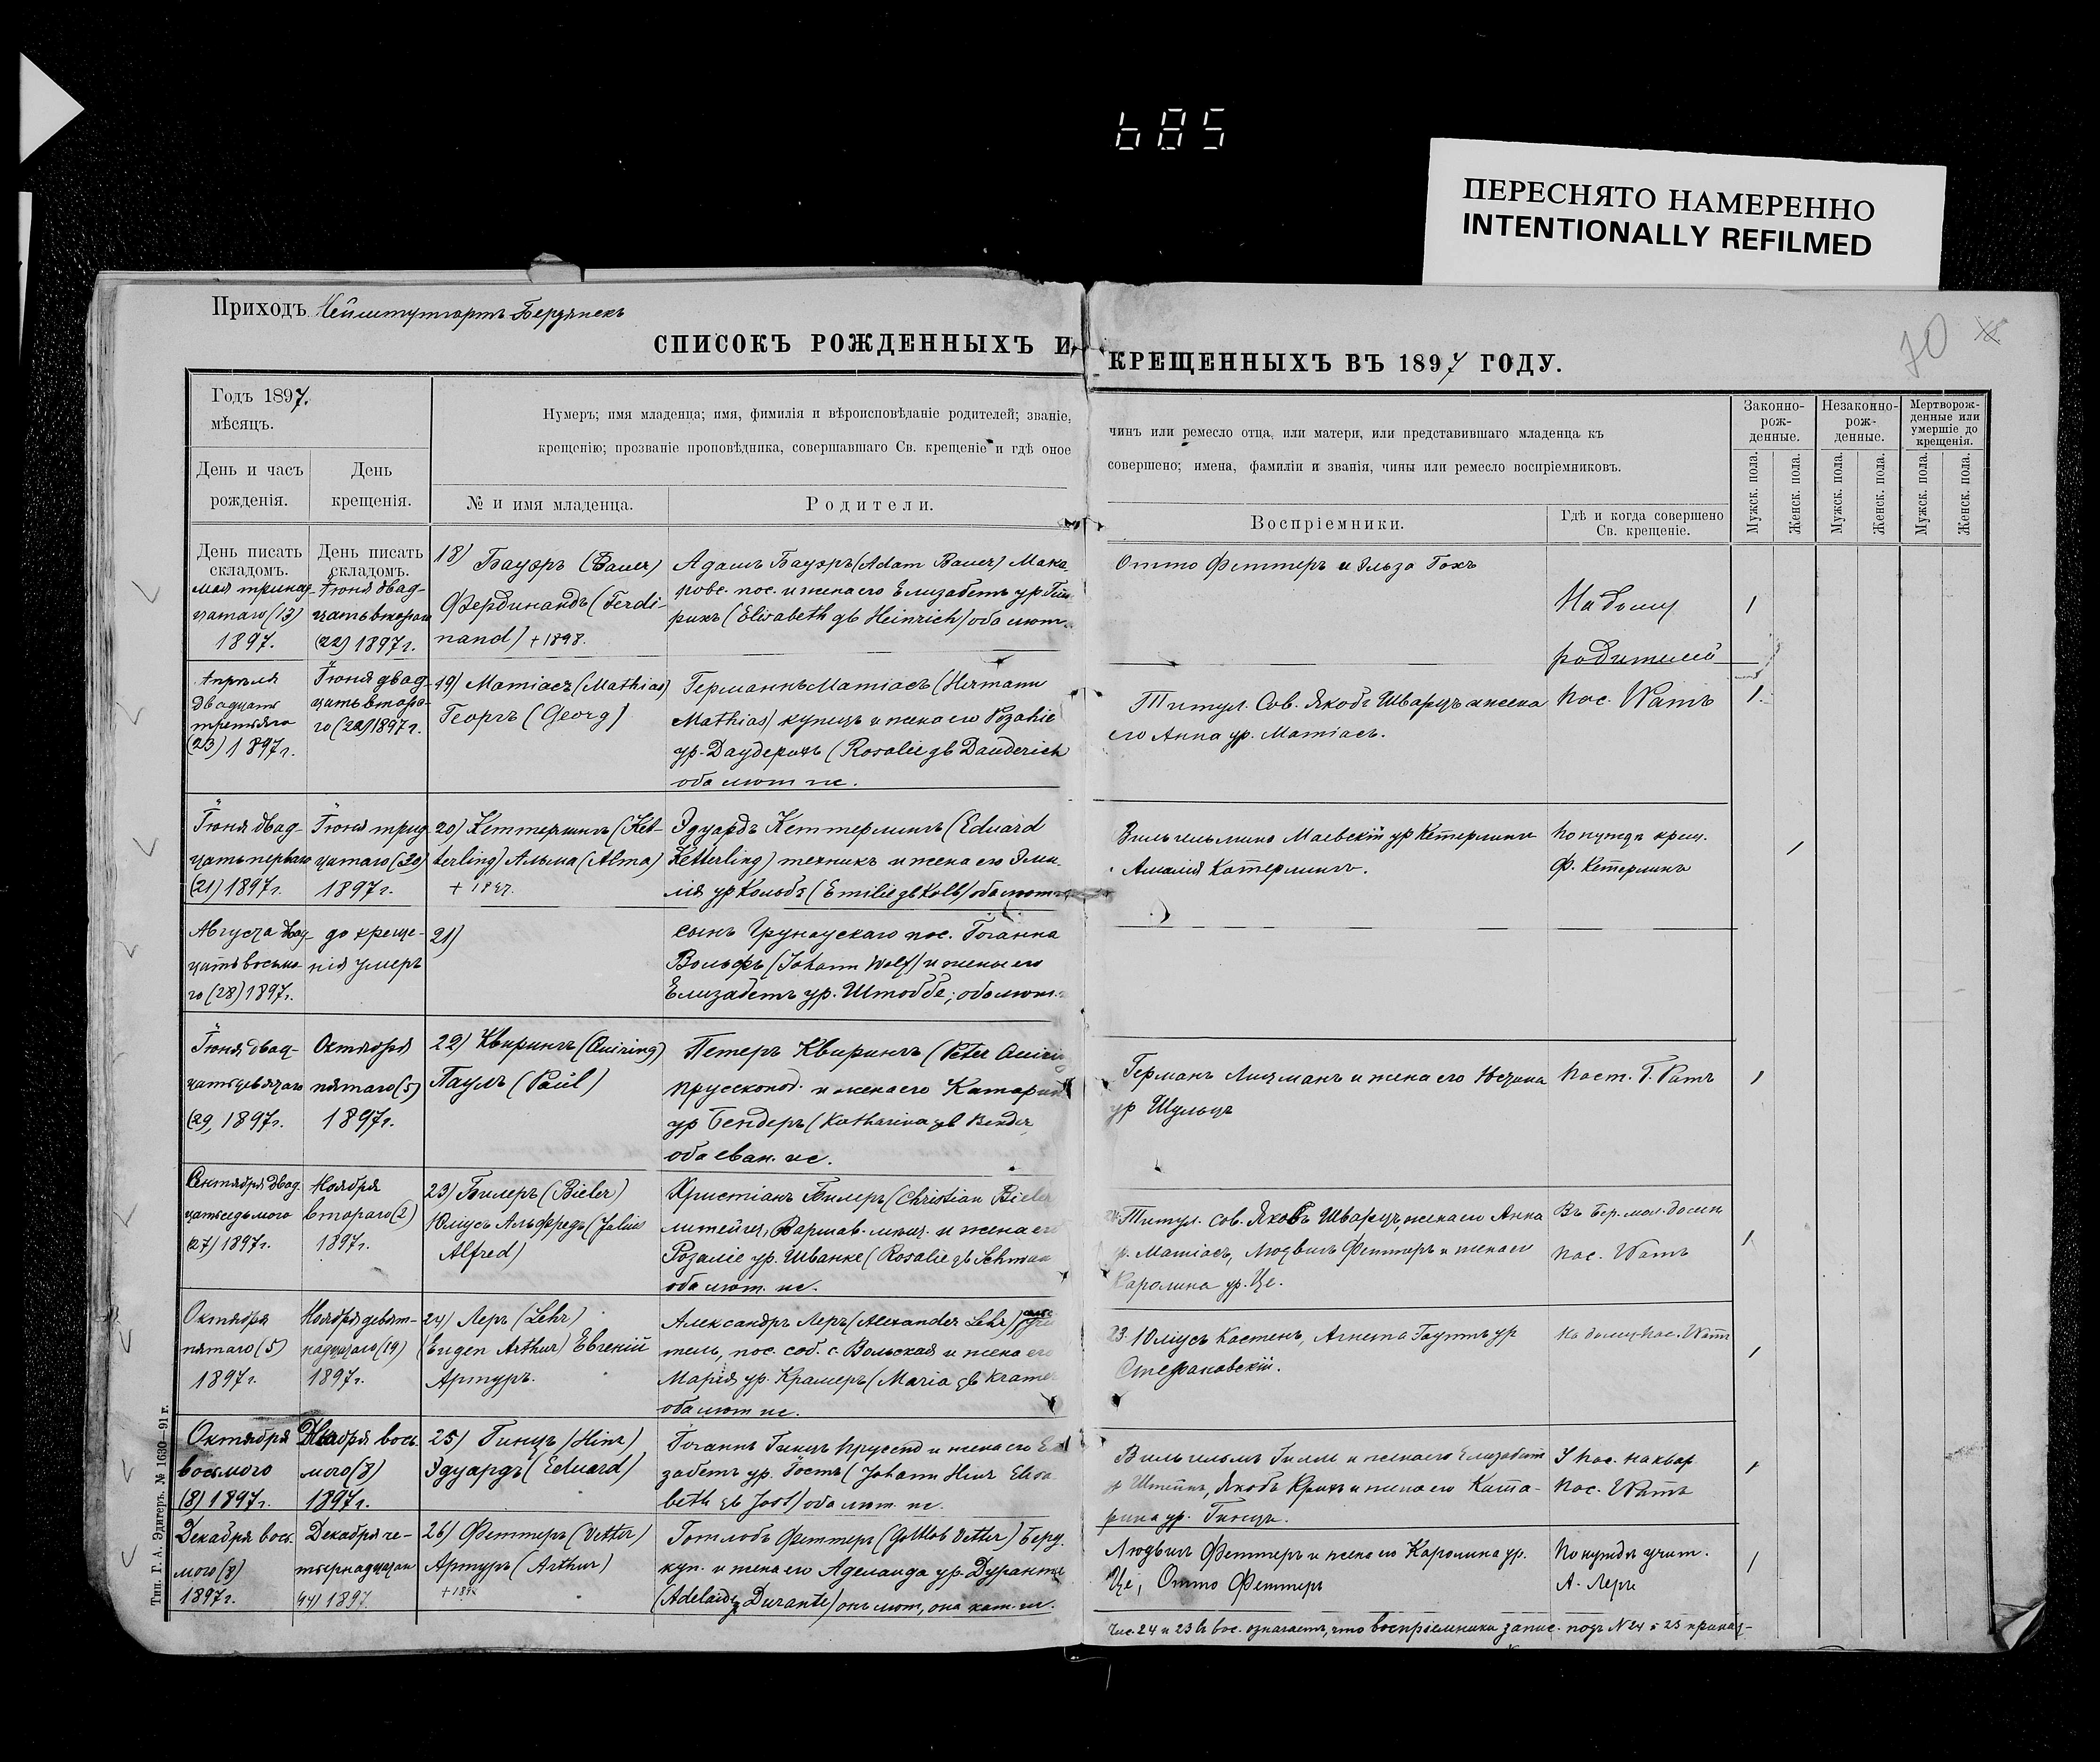 685
ПЕРЕСНЯТО НАМЕРЕННО
INTENTIONALLY REFILMED
Приходъ Нейштутгартъ-Бердянскъ
70
СПИСОКЪ РОЖДЕННЫХЪ И КРЕЩЕННЫХЪ ВЪ 1897 ГОДУ.
Годъ 1897.
мѣсяцъ.
День и часъ рожденія.
День крещенія.
Нумеръ; имя младенца; имя, фимилія и вѣроисповѣданіе родителей; званіе, чинъ или ремесло отца, или матери, или представившаго младенца къ
крещенію; прозваніе проповѣдника, совершавшаго Св. крещеніе и гдѣ оное совершено; имена, фамиліи и званія, чины или ремесло воспріемниковъ.
№ и имя младенца.
Родители.
Воспріемники.
Гдѣ и когда совершено
Св. крещеніе.
Законно-
рож-
денные.
Незаконно-
рож-
денные.
Мертворож-
денные или
умершіе до
крещенія.
Мужск. пола.
Женск. пола.
Мужск. пола.
Женск. пола.
Мужск. пола.
Женск. пола.
День писать
складомъ.
День писать
складомъ.
мая тринад-
цатаго (13)
1897.
Іюня двад-
цать второго
(22) 1897 г.
18) Бауэръ (Bauer)
Фердинандъ (Ferdi-
nand) +1898.
Адамъ Бауэръ (Adam Bauer) Мака-
ровс. пос. и жена его Елизабетъ ур Гейн
рихъ (Elisabeth gb Heinrich) оба лют.
Отто Феттеръ и Эльза Гохъ
На дому
родителей
1
Апрѣля
двадцать
третьяго
(23) 1897 г.
Іюня двад-
цать второ-
го (22) 1897 г.
19) Матіасъ (Mathias)
Георгъ (Georg)
Германнъ Матіасъ (Hermann
Mathias) купецъ и жена его Розаліе
ур. Даудерихъ (Rosalie gb Dauderich
оба лют ис.
Титул. Сов. Якобъ Шварцъ и жена
его Анна ур. Матіасъ.
пас. Wатъ
1.
Іюня двад-
цать перваго
(21) 1897 г.
Іюня трид
цатаго (30)
1897 г.
20) Кеттерлингъ (Ket-
terling) Альма (Alma)
+ 1897.
Эдуардъ Кеттерлингъ (Eduard
Ketterling) техникъ и жена его Эми-
лія ур Кольбъ (Emilie gb Kolb) оба лют
Вильгельмина Маевскій ур Кетерлингъ
Амалія Катерлингъ.
по нуждѣ крещ.
Ф. Кетерлингъ
1
Августа двад-
цать восьмо-
го (28) 1897 г.
до креще-
нія умеръ
21)
сынъ Грунаускаго пос. Іоганна
Вольфъ (Johann Wolf) и жены его
Елизабетъ ур. Штоббе; оба лют.
Іюня двад-
цать девятаго
(29) 1897 г.
Октября
пятаго (5)
1897 г.
22) Квирингъ (Quiring)
Паулъ (Paul)
Петеръ Квирингъ (Peter Quiring
прусскопод. и жена его Катарин
ур Бендеръ (Katharina gb Bender
оба еван. ис.
Германъ Лихманъ и жена его
ур Шульцъ
Паст. Г. Ратъ
1
Сентября двад
цать седьмого
(27) 1897 г.
Ноября
второго (2)
1897 г.
23) Билеръ (Bieler)
Юліусъ Альфредъ (Julius
Alfred)
Христіанъ Билеръ (Christian Bieler
литейщ. Варшав. мѣщ. и жена его
Розаліе ур. Шванке (Rosalie gb Schwan
оба лют. ис.
24. Титул. Сов. Яковъ Шварцъ, жена его Анна
ур. Матіасъ, Людвигъ Феттеръ и жена его
Каролина ур. Це.
Въ Бер. мол. домѣ
пас. Wатъ
1
Октября
пятаго (5)
1897 г.
Ноября девят-
надцатаго (19)
1897 г.
24) Леръ (Lehr)
(Eugen Arthur) Евгеній
Артуръ.
Александръ Леръ (Alexander Lehr) учи
тель, пос. соб. с. Вольская и жена его
Марія ур. Крамеръ (Maria gb Kramer
оба лют ис.
23. Юліусъ Кастенъ, Агнета Гауптъ ур
Стефановскій.
На дому пас. Wатъ
1
Октября
восьмого
(8) 1897 г.
Декабря вось
мого (8)
1897 г.
25) Гинцъ (Hinz)
Эдуардъ (Eduard)
Іоганнъ Гинцъ прусспд и жена его Ели
забетъ ур. Іостъ (Johann Hinz Elisa
beth gb Jost) оба лют. ис.
Вильгельмъ Гилле и жена его Елизабетъ
ур Штейнъ, Якобъ Крихъ и жена его Ката-
рина ур. Гинцъ.
У пас. на квар
пас. Wатъ
1
Декабря вось
мого (8)
1897 г.
Декабря че-
тырнадцатаго
(14) 1897.
26) Феттеръ (Vetter)
Артуръ (Arthur)
Готлобъ Феттеръ (Gottlob Vetter) Берд.
куп. и жена его Аделаида ур. Дуранте
(Adelaide Durante) онъ лют, она кат. ис.
Людвигъ Феттеръ и жена его Каролина ур.
Це, Отто Феттеръ
По нуждѣ учит.
А. Леръ
1
Чис. 24 и 23 въ вос. означаетъ, что воспріемники запис. подъ N 24 и 23 принад-
Тип. Г. А. Эдигеръ. № 1630—91 г.